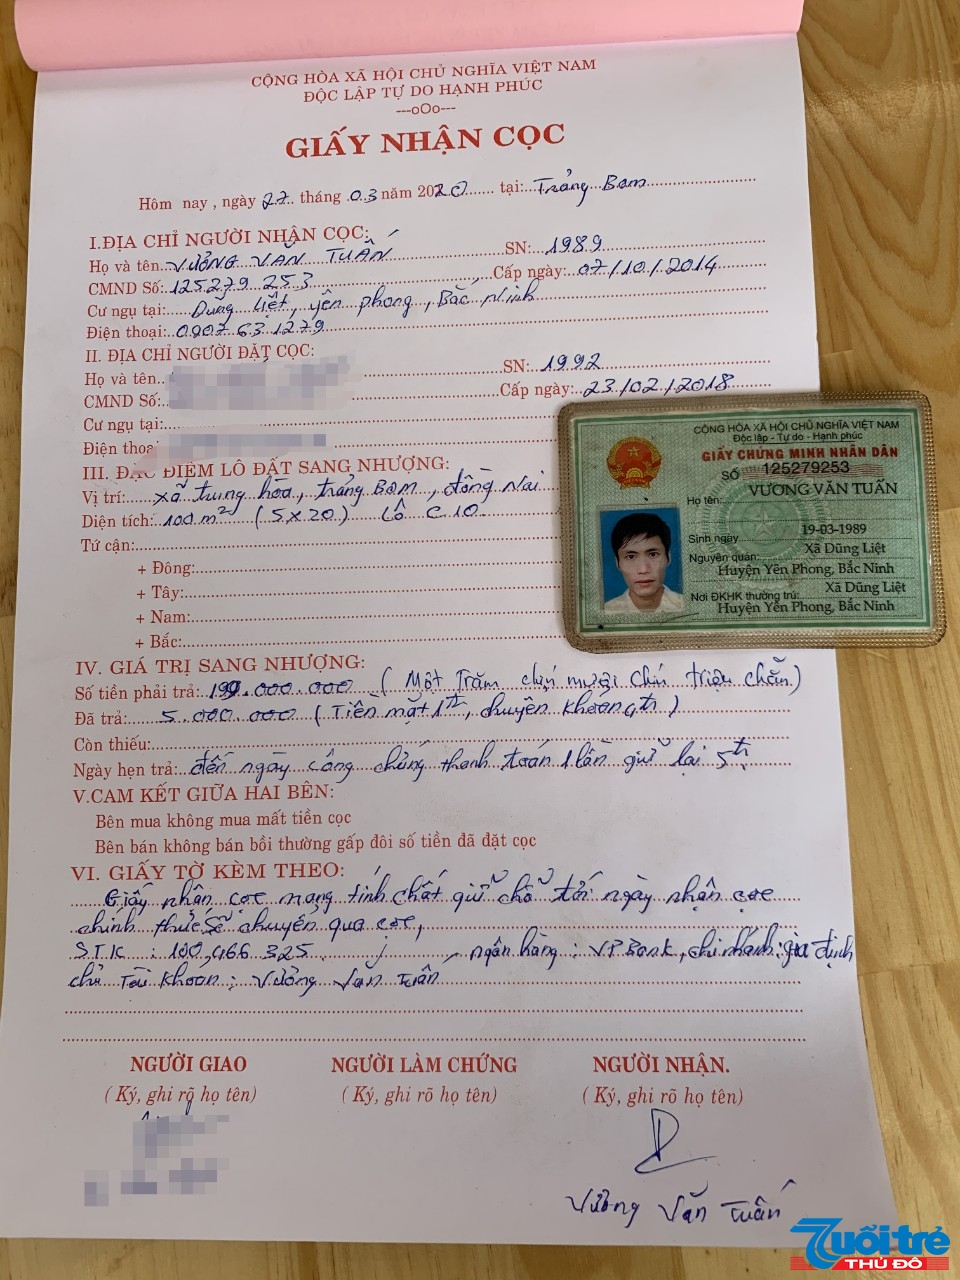 CỘNG HÒA XÃ HỘI CHỦ NGHĨA VIỆT NAM
ĐỘC LẬP TỰ DO HẠNH PHÚC
---oOo---
GIẤY NHẬN CỌC
Hôm nay , ngày 27 tháng 03 năm 2020 tại: Trảng Bom
I.ĐỊA CHỈ NGƯỜI NHẬN CỌC:
Họ và tên VƯƠNG VĂN TUẤN SN: 1989
CMND Số: 125279 253 Cấp ngày: 07/10/2014
Cư ngụ tại: Dũng Liệt, yên phong, Bắc Ninh
Điện thoại: 0907631279
II. ĐỊA CHỈ NGƯỜI ĐẶT CỌC:
Họ và tên SN: 1992
CMND Số: Cấp ngày: 23/02/2018
Cư ngụ tại:
Điện thoại
III. ĐẶC ĐIỂM LÔ ĐẤT SANG NHƯỢNG:
Vị trí: xã trung hòa, trảng Bom, đồng Nai
Diện tích: 100m² (5x20) Lô C10
Tứ cận:
+ Đông:
+ Tây:
+ Nam:
+ Bắc:
IV. GIÁ TRỊ SANG NHƯỢNG:
Số tiền phải trả: 199.000.000 (Một Trăm chín mươi chín triệu chẵn)
Đã trả: 5.000.000 (Tiền mặt 1tr, chuyển khoản 4tr)
Còn thiếu:
Ngày hẹn trả: đến ngày công chứng thanh toán 1 lần giữ lại 5tr
V.CAM KẾT GIỮA HAI BÊN:
Bên mua không mua mất tiền cọc
Bên bán không bán bồi thường gấp đôi số tiền đã đặt cọc
VI. GIẤY TỜ KÈM THEO:
Giấy nhận cọc mang tính chất giữ chỗ tới ngày nhận cọc
chính thức sẽ chuyển qua cọc,
STK : 100,466 325 ngân hàng : VP Bank, chi nhánh: gia định
chủ Tài khoản : Vương Văn Tuấn
NGƯỜI GIAO NGƯỜI LÀM CHỨNG NGƯỜI NHẬN.
( Ký, ghi rõ họ tên) ( Ký, ghi rõ họ tên) ( Ký, ghi rõ họ tên)
Vương Văn Tuấn
CỘNG HÒA XÃ HỘI CHỦ NGHĨA VIỆT NAM
Độc lập - Tự do - Hạnh phúc
GIẤY CHỨNG MINH NHÂN DÂN
SỐ 125279253
Họ tên: VƯƠNG VĂN TUẤN
Sinh ngày 19-03-1989
Nguyên quán: Xã Dũng Liệt
Huyện Yên Phong, Bắc Ninh
Nơi ĐKHK thường trú: Xã Dũng Liệt
Huyện Yên Phong, Bắc Ninh
Tuổi trẻ
THỦ ĐÔ